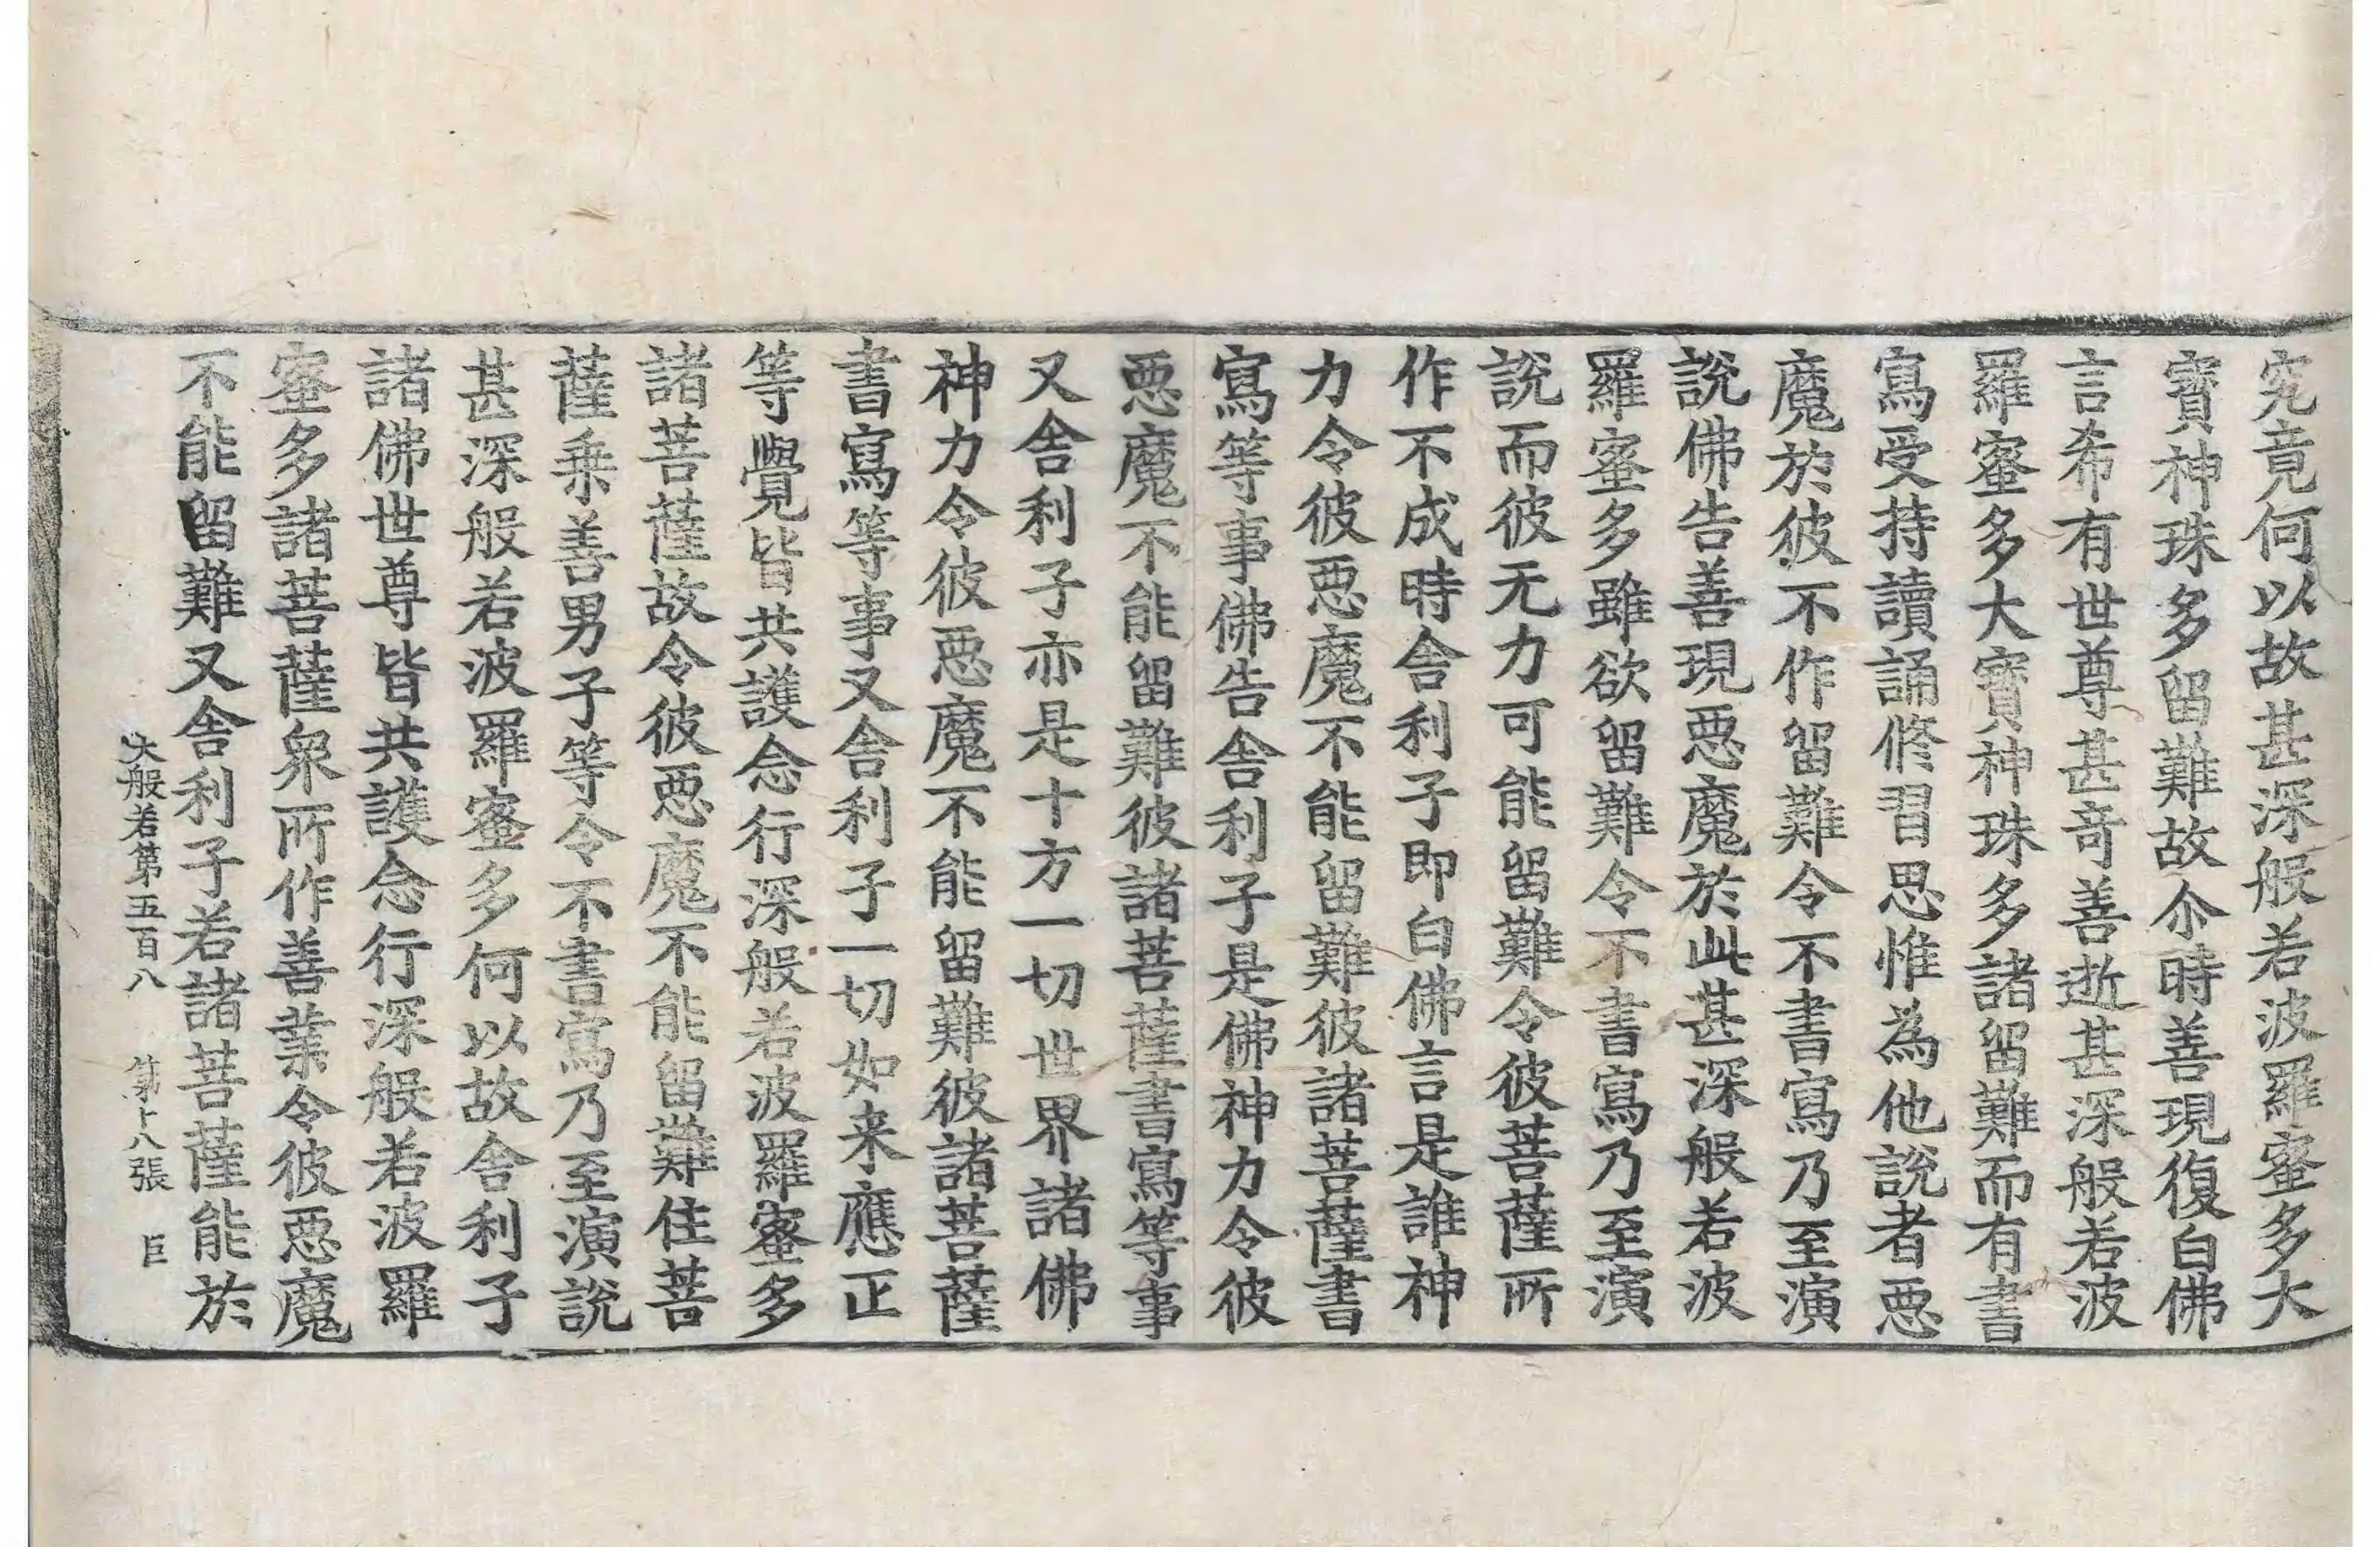 究竟何以故甚深般若波羅蜜多大
寶神珠多留難故尒時善現復白佛
言希有世尊甚竒善逝甚深般若波
羅蜜多大寶神珠多諸留難而有書
寫受持讀誦修習思惟為他說者惡
魔於彼不作留難令不書寫乃至演
說佛告善現惡魔於此甚深般若波
羅蜜多雖欲留難令不書寫乃至演
說而彼无力可能留難令彼菩薩所
作不成時舍利子即白佛言是誰神
力令彼惡魔不能留難彼諸菩薩書
寫等事佛告舍利子是佛神力令彼
惡魔不能留難彼諸菩薩書寫等事
又舍利子亦是十方一切世界諸佛
神力令彼惡魔不能留難彼諸菩薩
書寫等事又舍利子一切如来應正
等覺皆共護念行深般若波羅蜜多
諸菩薩故令彼惡魔不能留難住菩
薩乗善男子等令不書寫乃至演說
甚深般若波羅蜜多何以故舍利子
諸佛世尊皆共護念行深般若波羅
蜜多諸菩薩衆所作善業令彼惡魔
不能留難又舍利子若諸菩薩能於
大般若第五百八 第十八張 巨